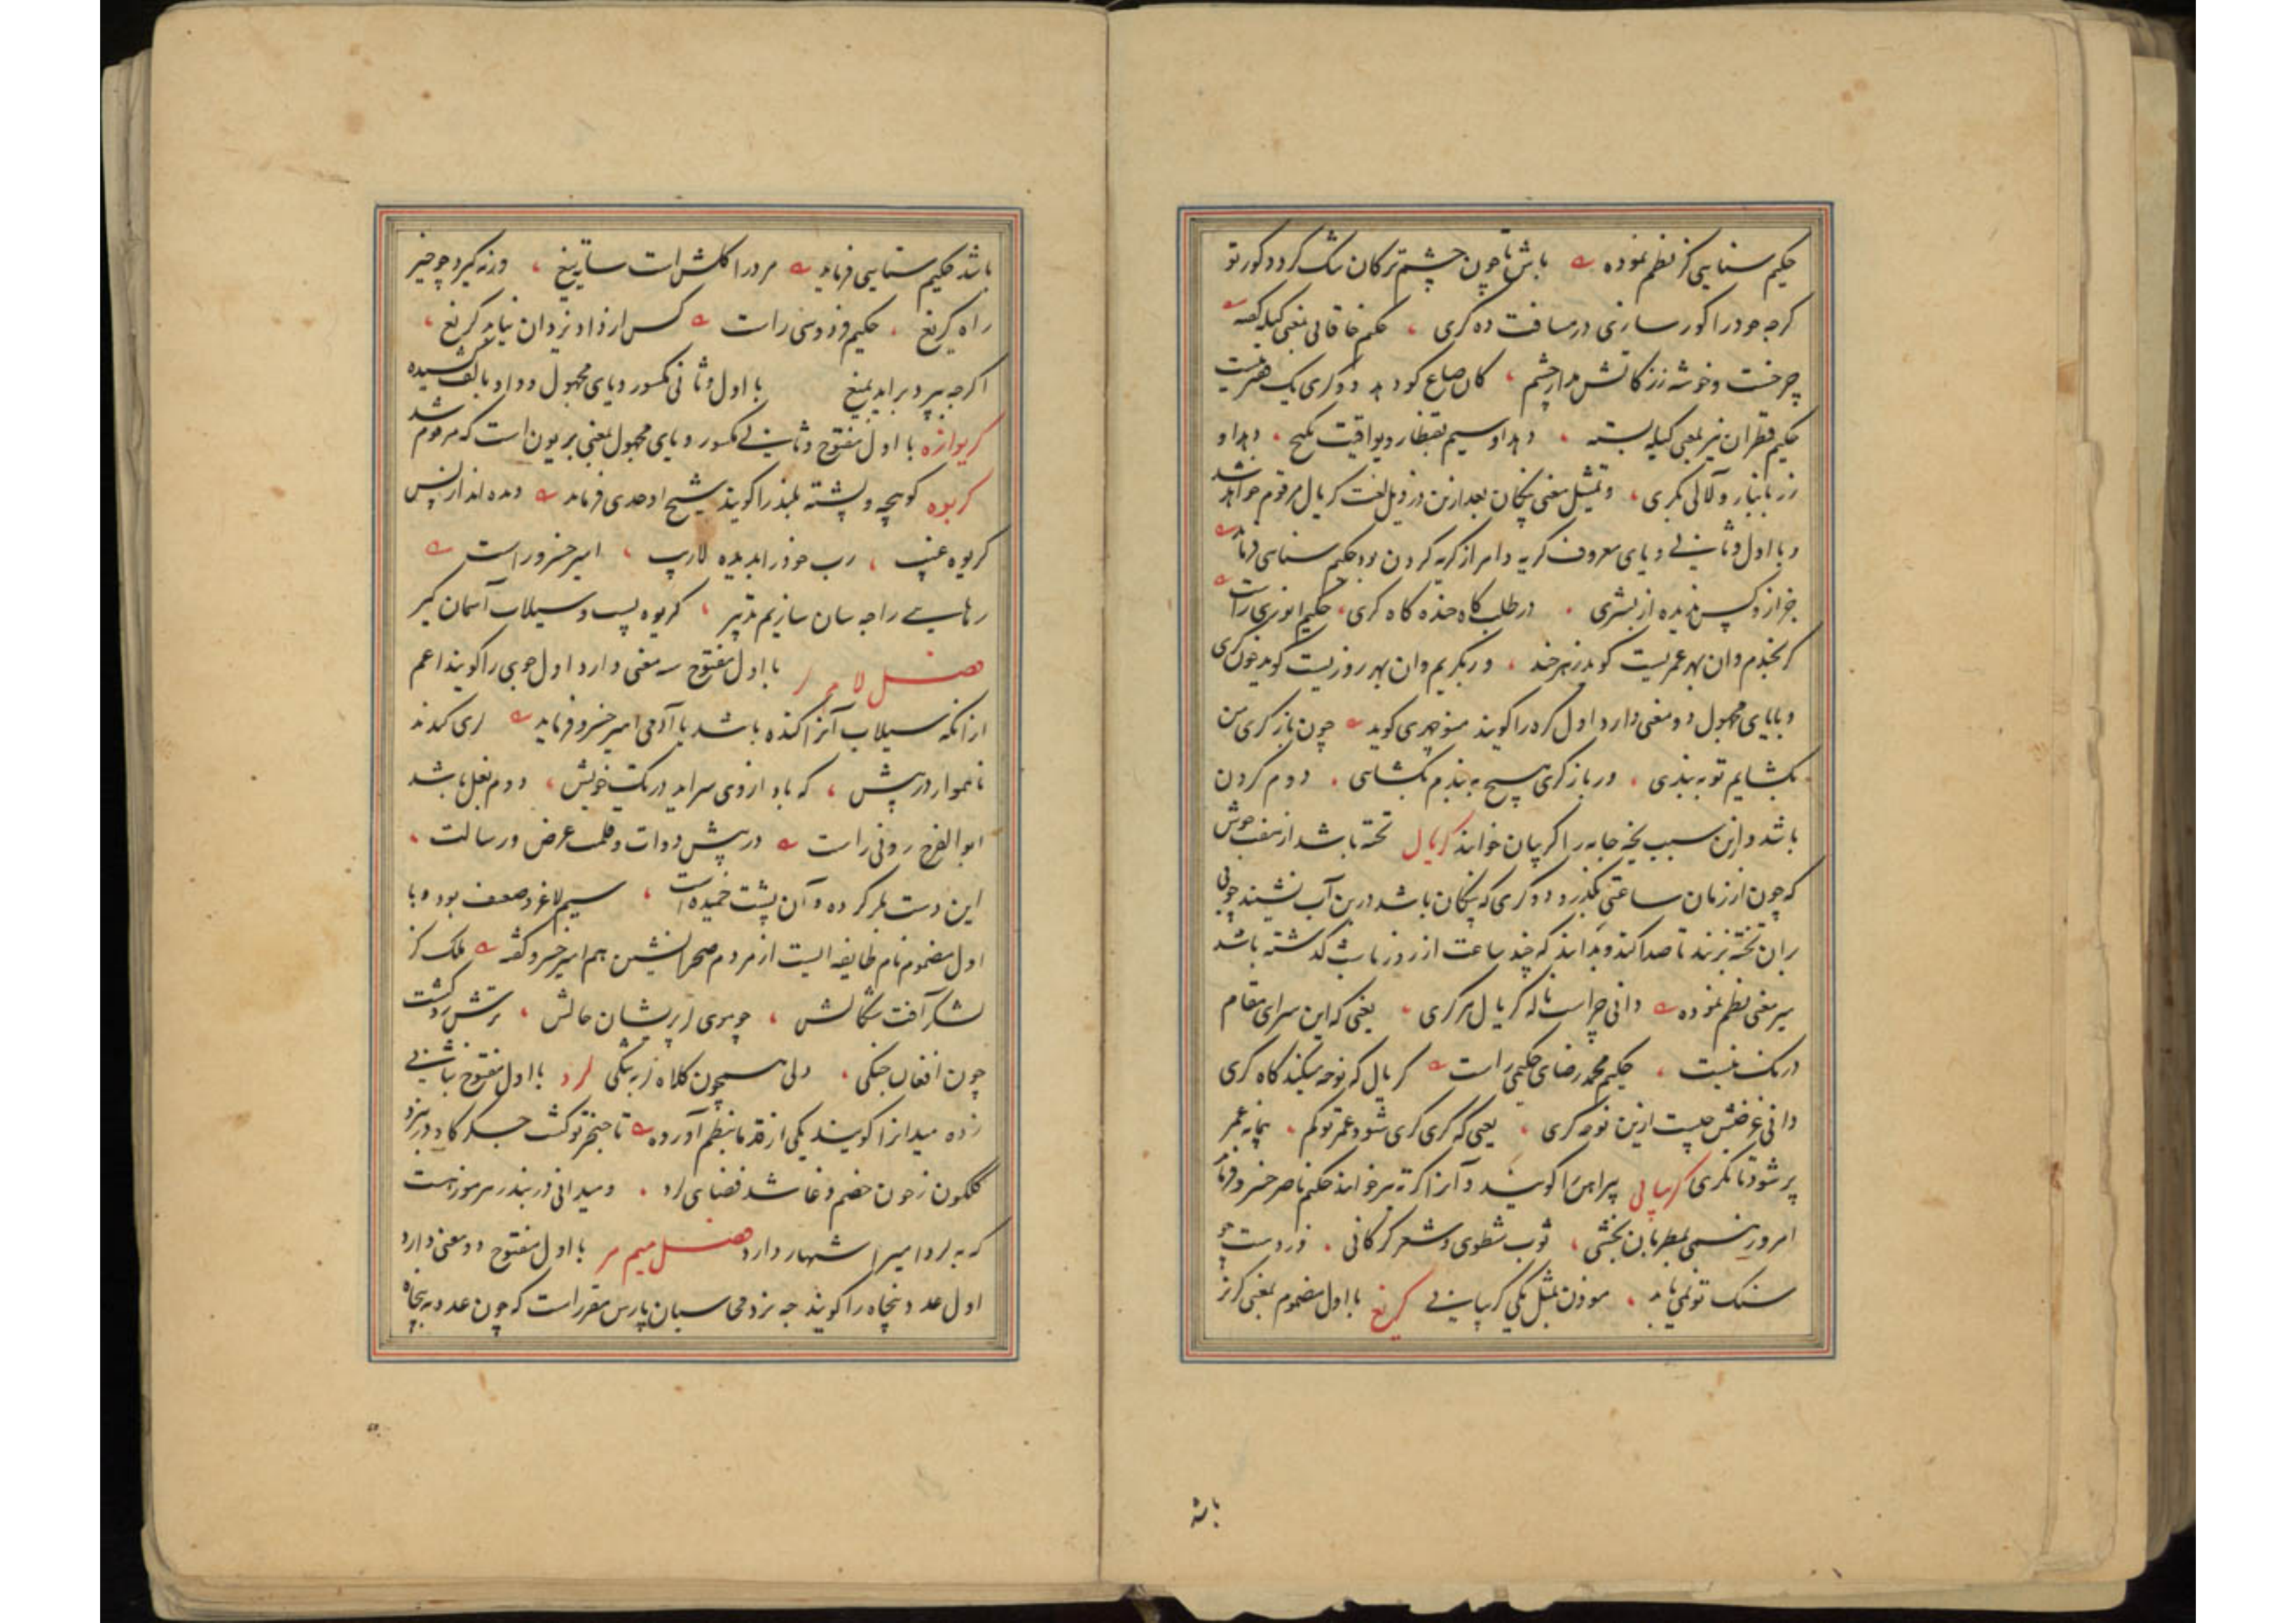 حکیم سنایی کز نظم نموده باش تا چون چشم ترکان تنک کردد کور تو
کرجه خود را کور سازی در مسافت ده کری ، حکیم خاقانی بمعنی کیله کفته
چرخست و خوشه زر کاتش مدار چشم ، کان صاع کو دهد دو کری یک
حکیم قطران نیز بمعنی کیله بسته ، دهد او سیم بقنطار و یواقیت بکیج ، دهد او
زر بانبار و لآلی بکری ، و تمثیل معنی پنکان بعد ازین در ذیل لغت کریال مرقوم خواهد شد
و با اول و ثانی و یای معروف کریه و امر از کریه کردن بود حکیم سنایی فرماید
خر از و کس ندیده از بشری ، در طلب کاه خنده کاه کری ، حکیم انوری راست
کر بخندم وان بهر عمریست کوید زهر خند ، ور بکریم وان بهر روزیست کوید خون کری
و با یای مجهول دو معنی دارد اول کره را کویند منوچهری کوید چون باز کری من
بکشایم تو ببندی ، ور باز کری هیچ ببندم بکشایی ، دوم کردن
باشد و ازین سبب یخه جامه را کریبان خوانند کریال تخته باشد از هفت جوش
که چون از زمان ساعتی بکذرد و دو کری که پنکان باشد درین آب نشیند چوبی
بران تخته زنند تا صدا کند و بدانند که چند ساعت از روز یا شب کذشته باشد
میر مغی نظم نموده دانی چراست ناله کریال هر کری ، یعنی که این سرای مقام
درنک نیست ، حکیم محمد رضای حکیمی راست کریال که نوحه میکند کاه کری
دانی غرضش چیست ازین نوحه کری ، یعنی که کری کری شود عمر تو کم ، پیمانه عمر
پر شود تا نکری کریانی پیراهن را کویند و آنرا کرته نیز خوانند حکیم ناصر خسرو فرماید
امروز همی بمطربان بخشی ، ثوب شطوی و شعر کرکانی ، و دست چو
سنک تو نمی یابد ، موذن بمثل یکی کریبانی کریغ با اول مضموم بمعنی کریز
باشد
باشد حکیم سنایی فرماید مرد را کلشن است سایه تیغ ، ورنه کیرد چو حیز
راه کریغ ، حکیم فردوسی راست کس از داد یزدان نیابد کریغ ،
اکرجه بپرد براید بمیغ با اول و ثانی مکسور و یای مجهول و واو بالف کشیده
کریوازه با اول مفتوح و ثانی مکسور و یای مجهول بمعنی بریون است که مرقوم شد
کریوه کوهچه و پشته بلند را کویند شیخ اوحدی فرماید دمده انداز پس
کریوه غیب ، رب خود را بدیده لاریب ، امیر خسرو راست
رهایی را جه سان سازیم تدبیر ، کریوه پست و سیلاب آسمان کیر
فصل لام با اول مفتوح سه معنی دارد اول جویی را کویند اعم
از انکه سیلاب آنرا کنده باشد یا آدمی امیر خسرو فرماید لری کندند
ناهموار در پیش ، که باد از وی سراید در تک خویش ، دوم بغل باشد
ابوالفرج رونی راست در پیش دوات و قلمت عرض رسالت ،
این دست بلر کرده و آن پشت خمیده است ، سیم لاغر و ضعیف بود و با
اول مضموم نام طایفه ایست از مردم صحرانشین هم امیر خسرو کفته ملک کز
لشکر آفت سکالش ، چو موی لر پریشان حالش ،
چون افغان جنکی ، ولی همچون کلاه زیر تنکی لرد با اول مفتوح بثانی
زده میدانرا کویند یکی از قدما بنظم آورده تا خنجر تو کشت جکر کاه
کلکون ز خون خصم و غا شد فضای لرد ، و میدانی در بندر هرموز هست
که به لرد امیر اشتهار دارد فصل میم مر با اول مفتوح دو معنی دارد
اول عدد پنجاه را کویند جه نزد محاسبان پارس مقرر است که چون عدد به پنجاه